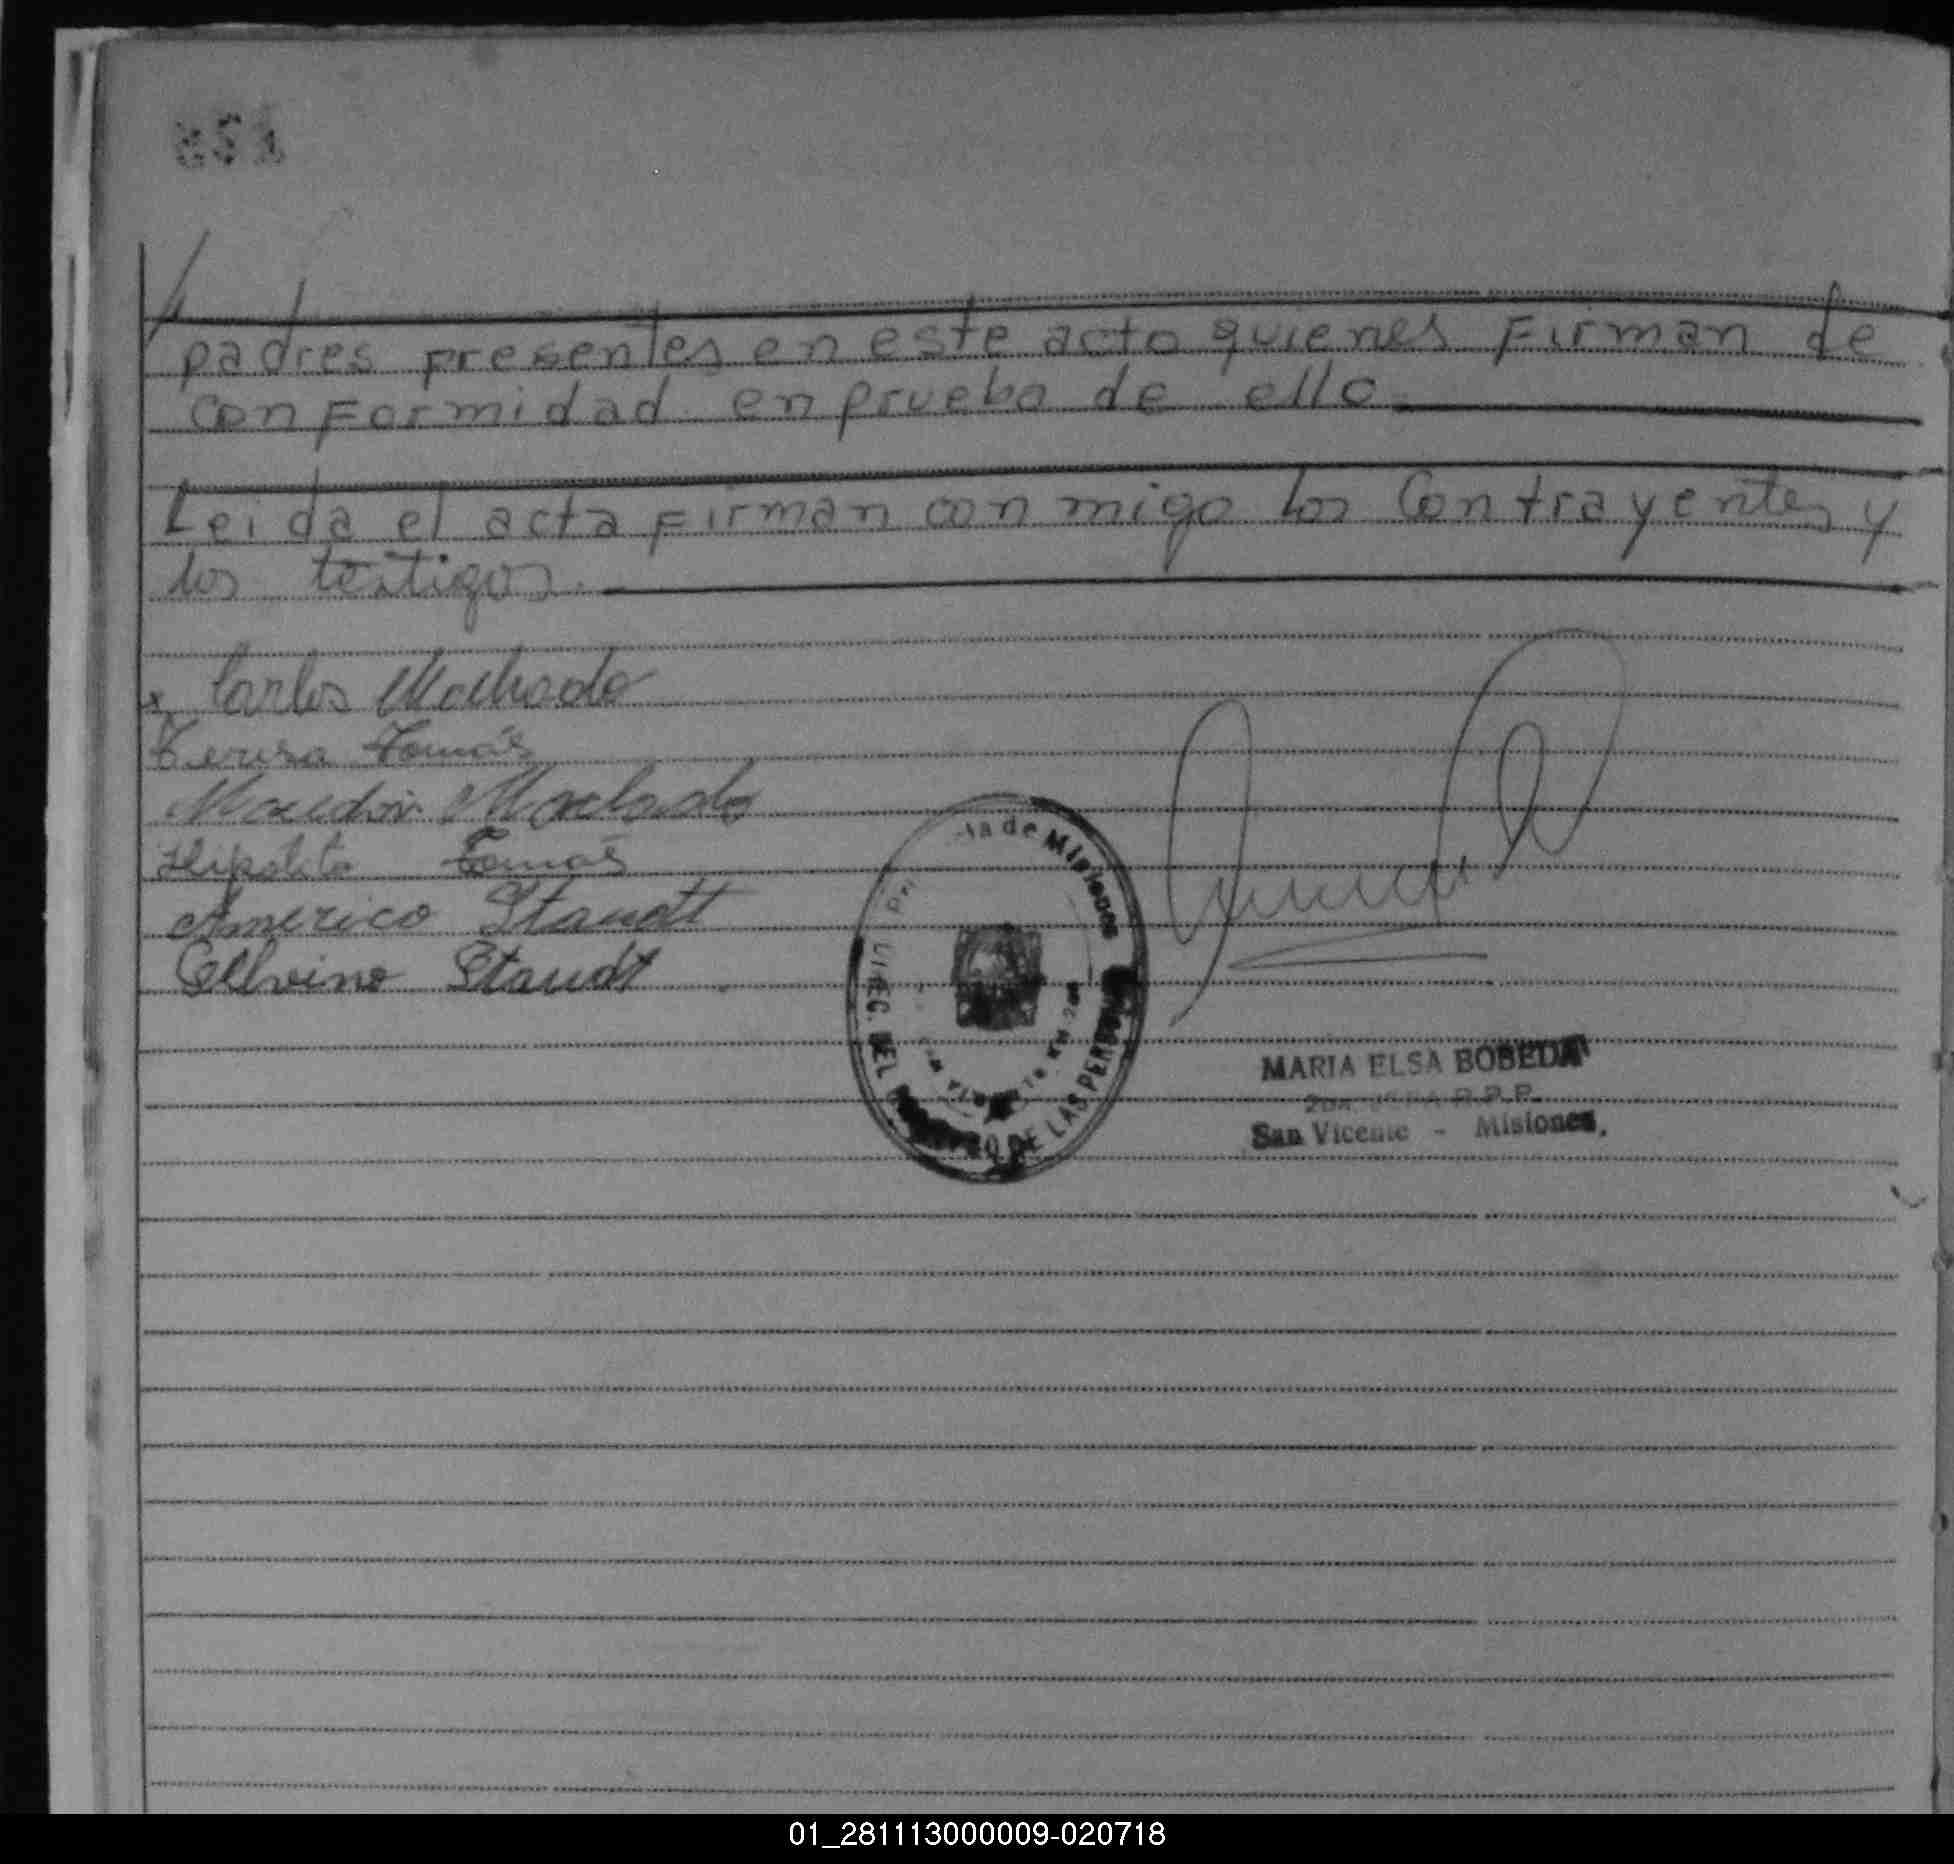 padres presentes en este acto quienes Firman de
conFormidad en prueba de ello.
Leida el acta Firman con migo los Contrayentes y
los testigos.
x Carlos Machado
Teresa Tomás
Machado
Hipolito Tomás
Americo Staudt
Staudt
de Misiones
DEL DE LAS PERSONAS
MARIA ELSA BOBEDA
R.P.P.
San Vicente - Misiones.
01_281113000009-020718